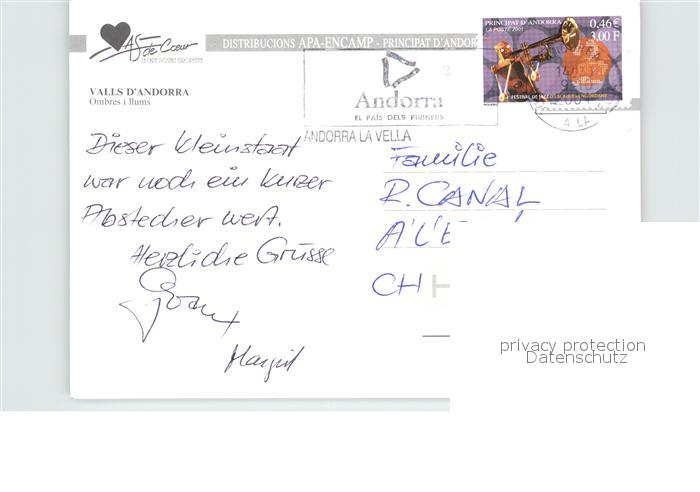 As de Coeur
LA CARTE POSTALE EUROPEENNE
DISTRIBUCIONS APA-ENCAMP - PRINCIPAT D'ANDOR
VALLS D'ANDORRA
Ombres i llums
Andorra
EL PAÍS DELS PIRINEUS
ANDORRA LA VELLA
PRINCIPAT D'ANDORRA
LA POSTE 2001
0,46€
3,00 F
FESTIVAL DE JAZZ D'ESCALDES-ENGORDANY
Dieser Kleinstaat
war noch ein kurzer
Abstecher wert.
Herzliche Grüsse
Margrit
Familie
R. CANAL
CH
privacy protection
Datenschutz